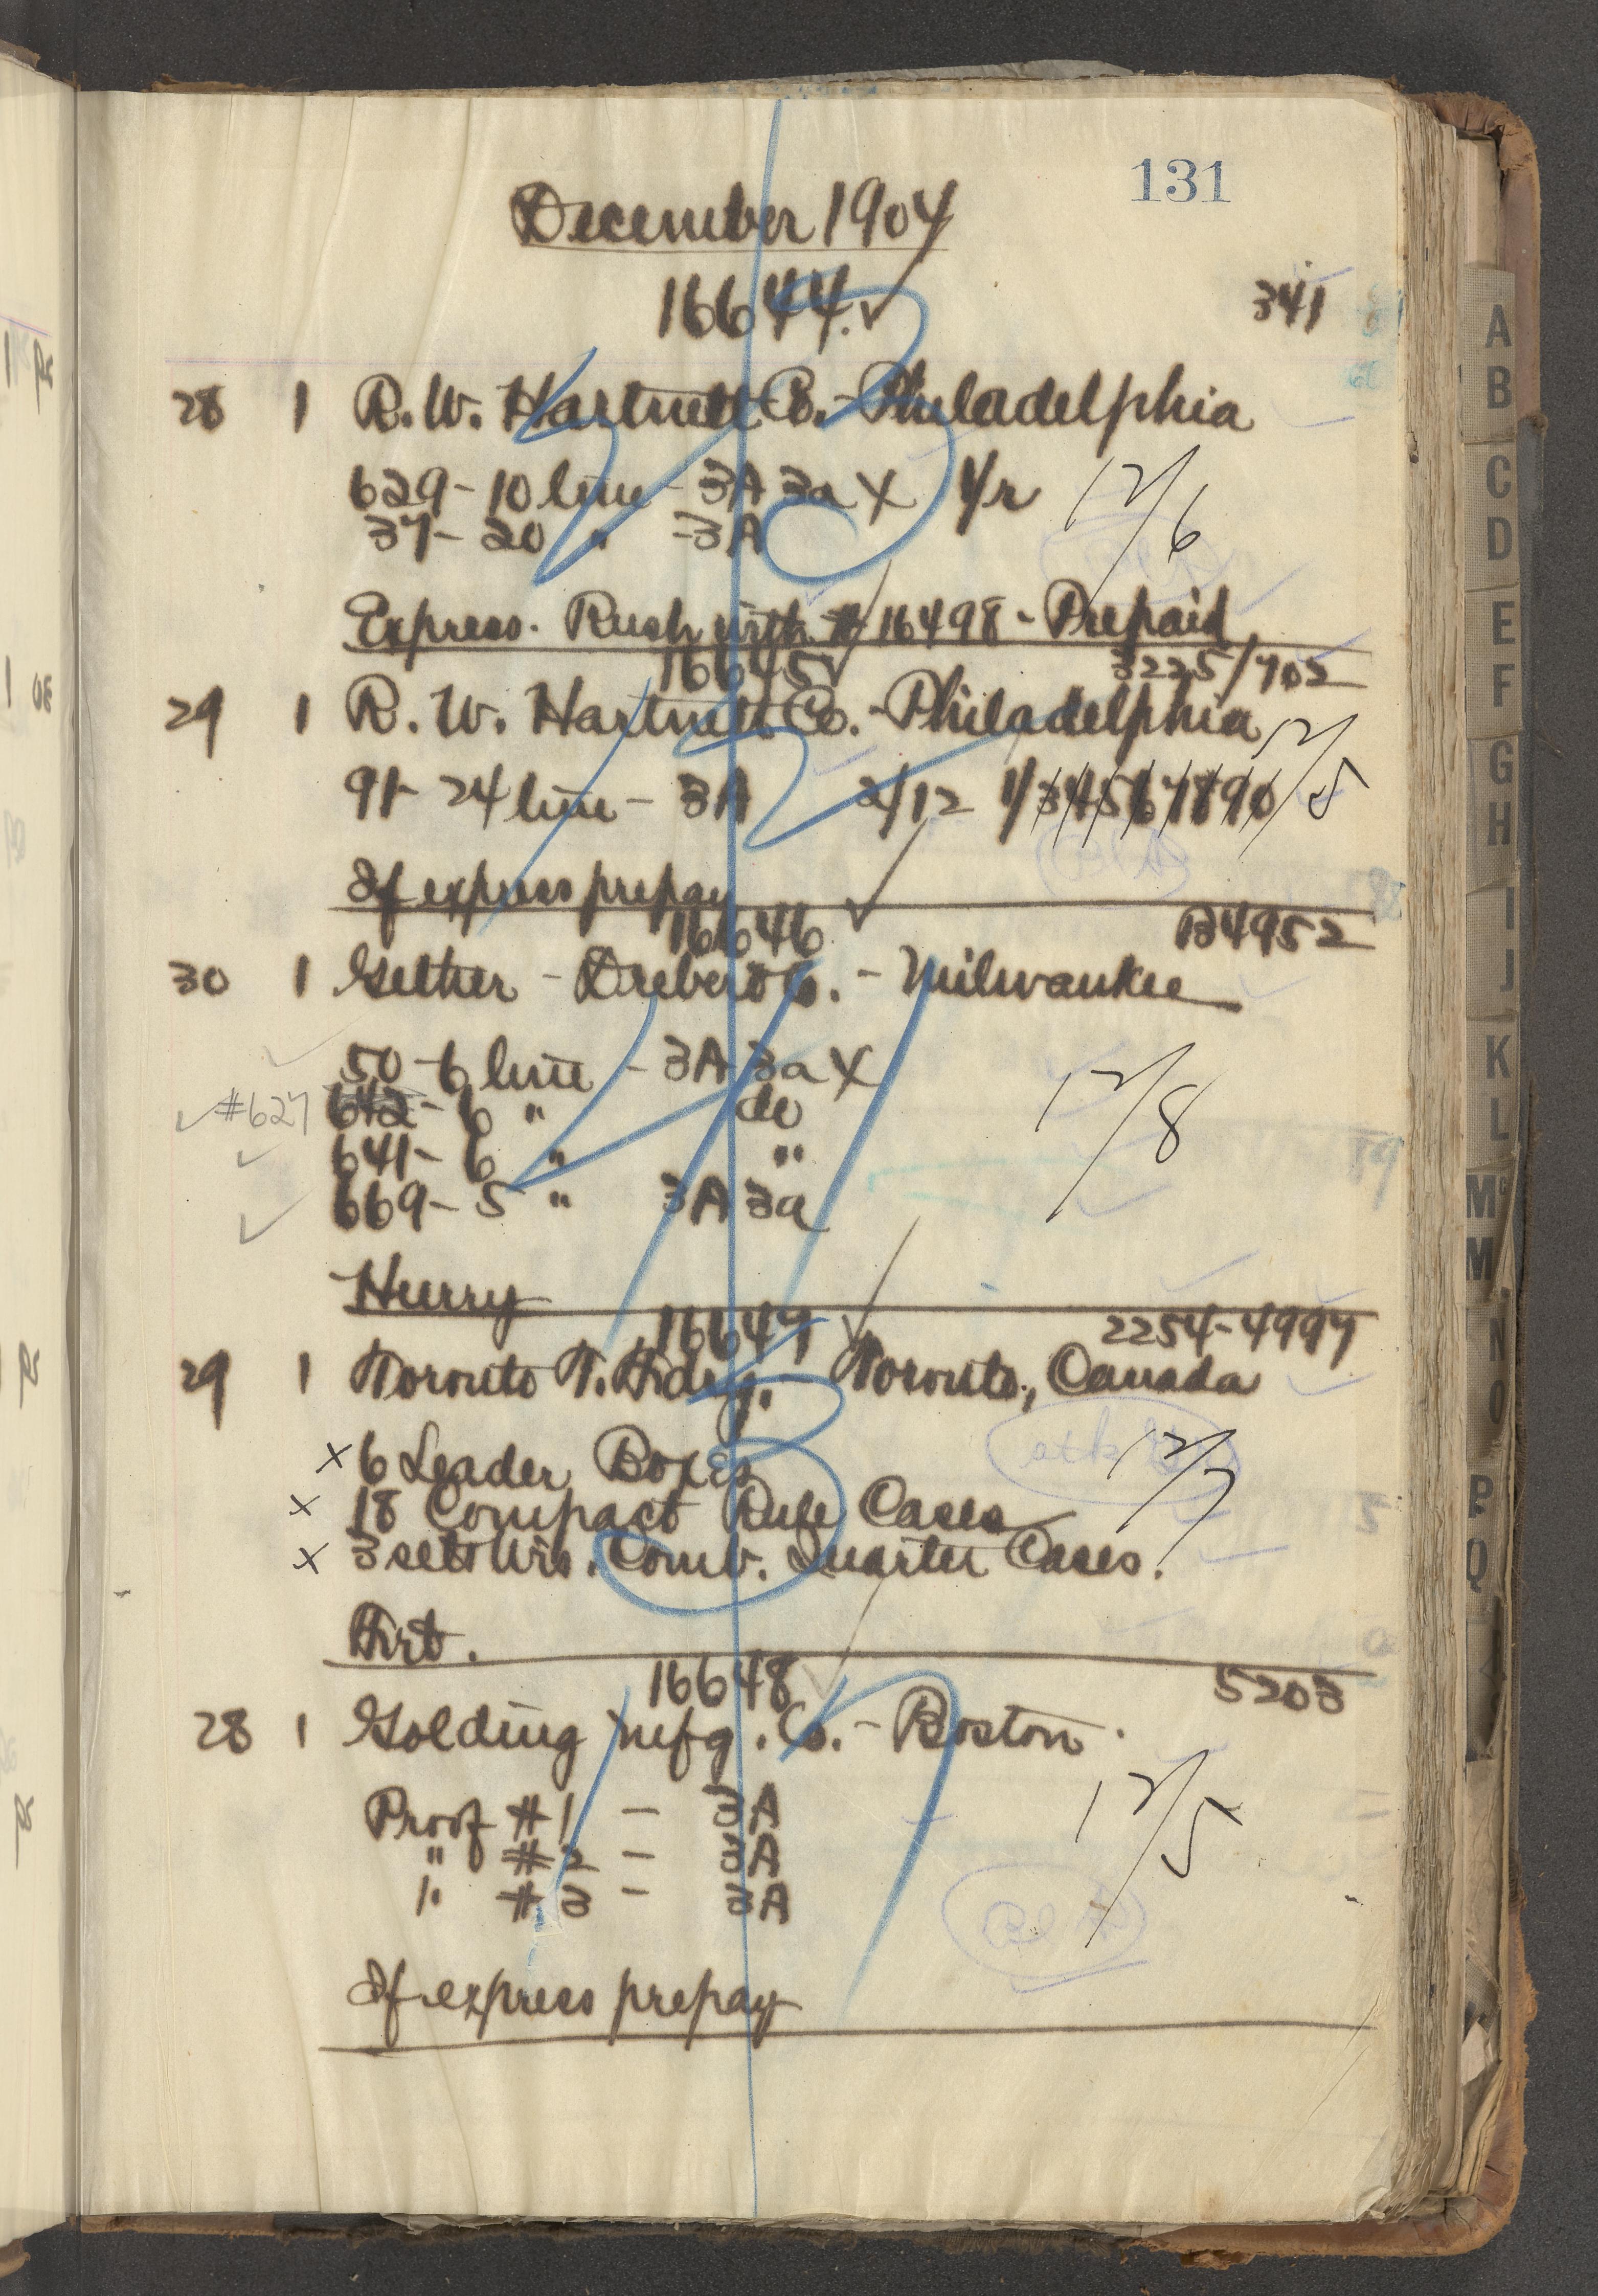 131
December 1904
16644. 341
28 1 R. W. Hartnett Co. - Philadelphia
629 - 10 line - 3A 3a X 1/r 12/6
37 - 20 " - 3A
Express. Rush with # 16498 - Prepaid
16645 3225/702
29 1 R. W. Hartnett Co. - Philadelphia 12/5
91 - 24 line - 3A 2/12 1/3/4/5/6/7/8/9/0/
If express prepay
16646 B4952
30 1 Gether - Drebert Co. - Milwaukee
50 - 6 line - 3A 3a X 12/8
#627 642 - 6 " do
641 - 6 " "
669 - 5 " 3A 3a
Hurry
16647 2254-4997
29 1 Toronto T. Fdry. Toronto, Canada
x 6 Leader Boxes 12/7
x 18 Compact Rule Cases
x 3 sets Wis. Comb. Quarter Cases.
Frt.
16648 5203
28 1 Golding Mfg. Co. - Boston.
Proof #1 - 3A 12/5
" #2 - 3A
" #3 - 3A
If express prepay
A
B
C
D
E
F
G
H
I
J
K
L
Mc
M
N
O
P
Q